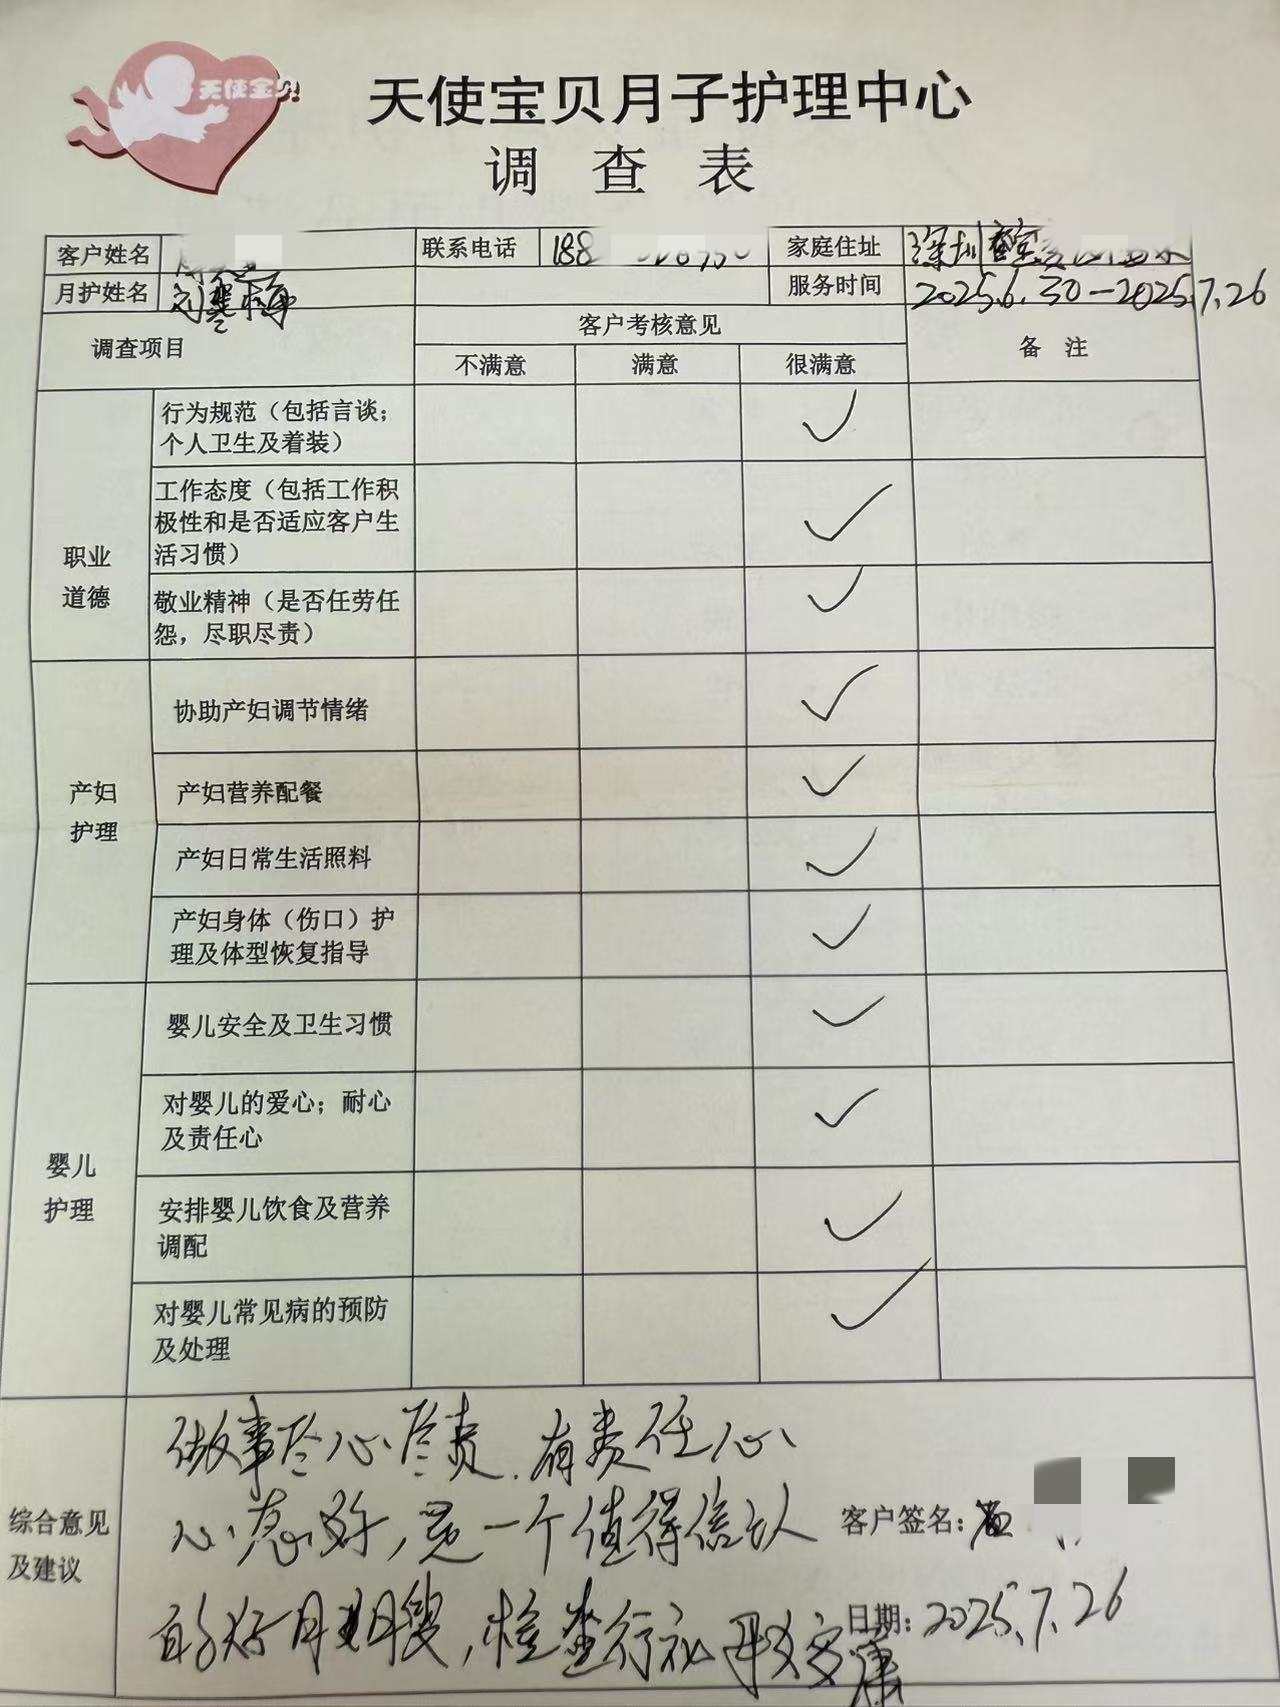 天使宝贝
天使宝贝月子护理中心
调查表
客户姓名 联系电话 188 家庭住址 深圳
月护姓名 刘寒梅 服务时间 2025.6.30-2025.7.26
调查项目 客户考核意见 备注
不满意 满意 很满意
职业
道德
行为规范（包括言谈；
个人卫生及着装） ✓
工作态度（包括工作积
极性和是否适应客户生
活习惯） ✓
敬业精神（是否任劳任
怨，尽职尽责） ✓
产妇
护理
协助产妇调节情绪 ✓
产妇营养配餐 ✓
产妇日常生活照料 ✓
产妇身体（伤口）护
理及体型恢复指导 ✓
婴儿
护理
婴儿安全及卫生习惯 ✓
对婴儿的爱心；耐心
及责任心 ✓
安排婴儿饮食及营养
调配 ✓
对婴儿常见病的预防
及处理 ✓
综合意见
及建议
做事尽心尽责，有责任心
心态好，是一个值得信认
的好月嫂，
客户签名：
日期：2025.7.26